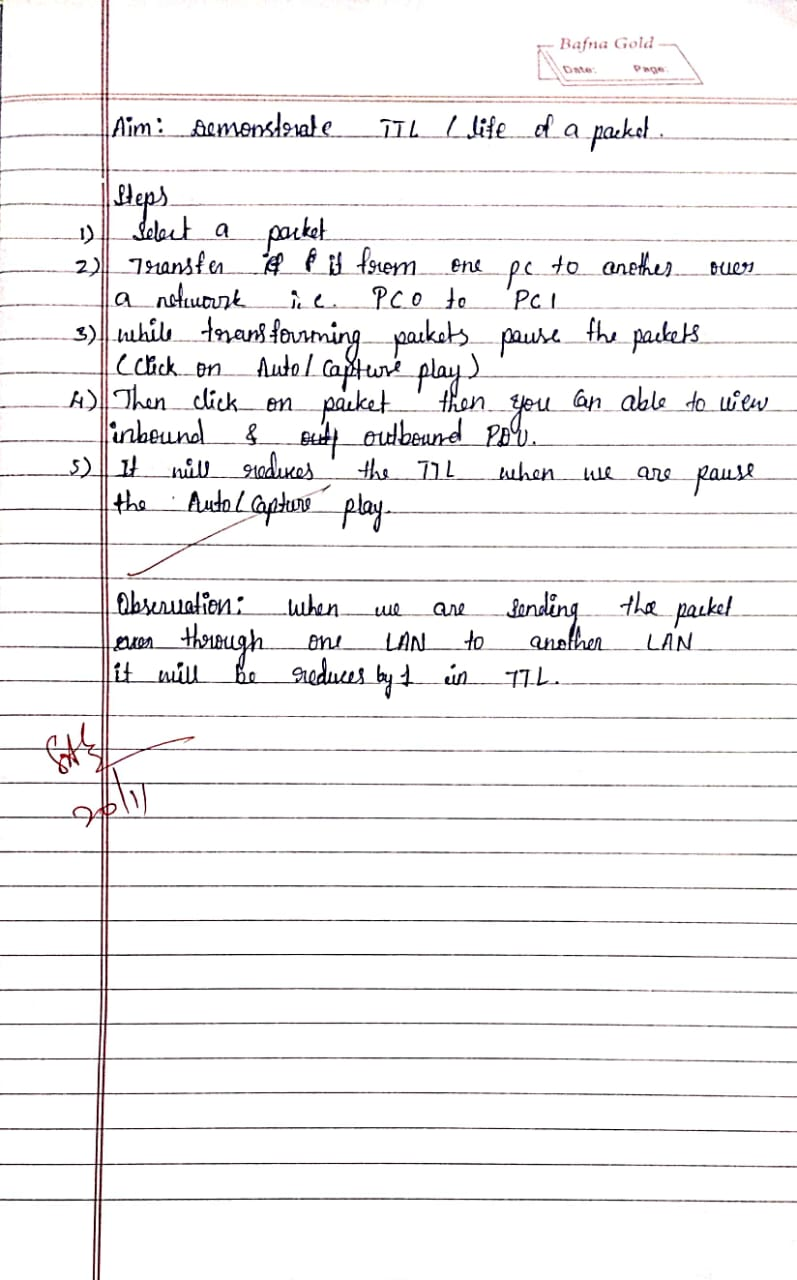 Bafna Gold
Date: Page:
Aim: Demonstrate TTL / life of a packet.
Steps
1) Select a packet
2) Transfer it from one pc to another over
a network i.e. PC0 to PC1
3) while transfourming packets pause the packets
(click on Auto/Capture play)
4) Then click on packet then you can able to view
inbound & outbound PDU.
5) It will reduces the TTL when we are pause
the Auto/Capture play.
Observation: when we are sending the packet
through one LAN to another LAN
it will be reduces by 1 in TTL.
20/11